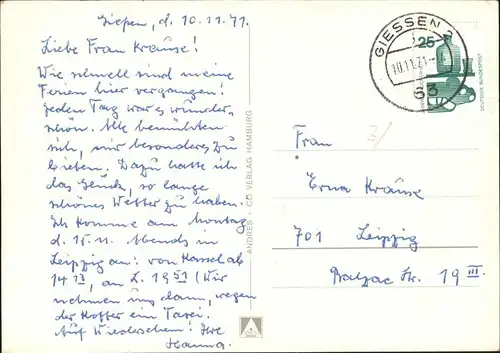 Gießen, d. 10.11.71.
Liebe Frau Krause!
Wie schnell sind meine
Ferien hier vergangen!
Jeden Tag war es wunder-
schön. Alle bemühten
sich, mir besonderes zu
bieten. Dazu hatte ich
das Glück, so lange
schönes Wetter zu haben.
Ich komme am Montag
d. 15.11. Abends in
Leipzig an: von Kassel ab
14 13, an L. 19 51 (Wir
nehmen uns dann, wegen
der Koffer ein Taxi.
Auf Wiedersehen! Ihre
Hanna.
ANDRES + CO VERLAG HAMBURG
GIESSEN 2
10.11.71
63
25
DEUTSCHE BUNDESPOST
Frau
Erna Krause
701 Leipzig
Balzac Str. 19 III.